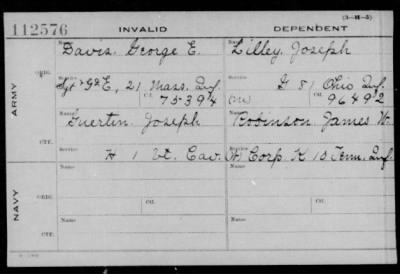 (3-M-5)
112576 INVALID DEPENDENT
Name Davis George E. Name Lilley, Joseph
ARMY
ORIG.
Service Sgt E, 21 Mass. Inf. Service G 81 Ohio Inf.
Ctf. 75394 (M) Ctf. 96492
Name Guertin Joseph Name Robinson James W.
CTF.
Service H 1 Vt. Cav. Corp. K 10 Tenn. Inf.
NAVY
ORIG.
Name Ctf. Name Ctf.
CTF.
Name Name